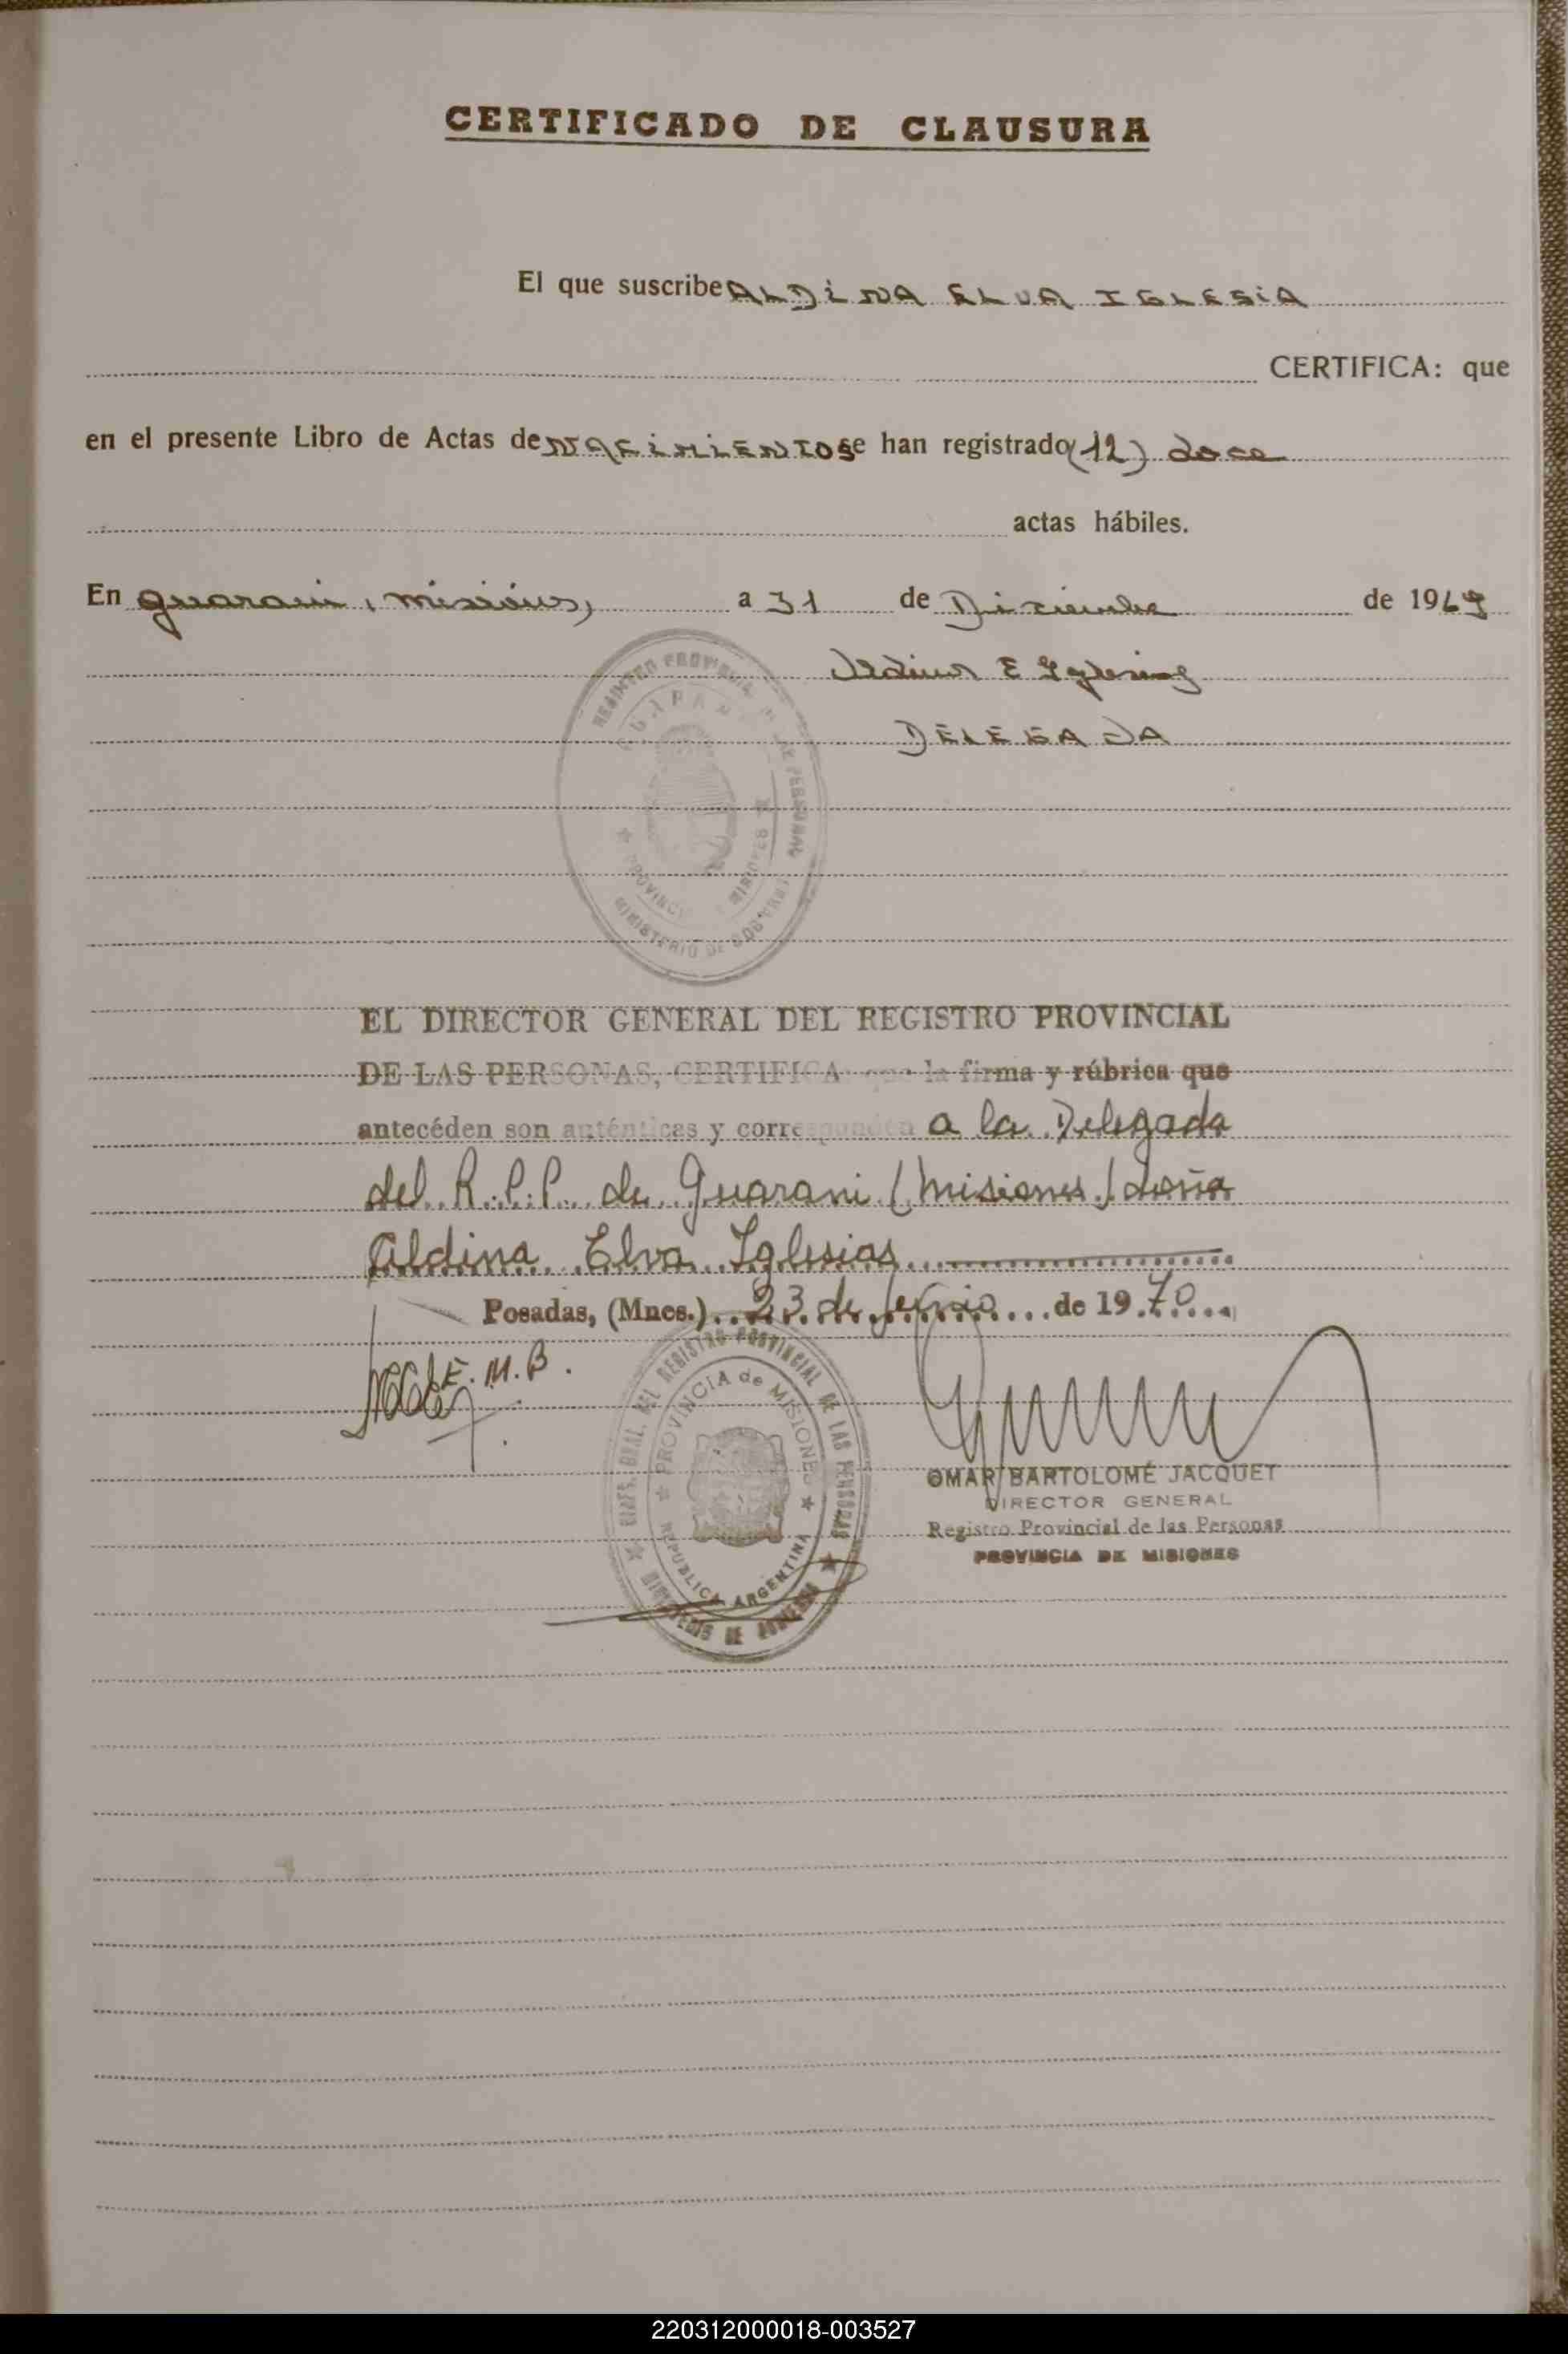 CERTIFICADO DE CLAUSURA
El que suscribe ALDINA ELVA IGLESIA
CERTIFICA: que
en el presente Libro de Actas de NACIMIENTO se han registrado (12) doce
actas hábiles.
En Guarani, Misiones, a 31 de Diciembre de 1969
Aldina E Iglesias
DELEGADA
REGISTRO PROVINCIAL DE LAS PERSONAS
GUARANI
PROVINCIA MISIONES
MINISTERIO DE GOBIERNO
EL DIRECTOR GENERAL DEL REGISTRO PROVINCIAL
DE LAS PERSONAS, CERTIFICA: que la firma y rúbrica que
antecéden son auténticas y corresponden a la Delegada
del R.P.P. de Guarani (Misiones) doña
Aldina Elva Iglesias
Posadas, (Mnes.) 23 de Junio de 1970
E. M. B.
DEL REGISTRO PROVINCIAL DE LAS PERSONAS
PROVINCIA de MISIONES
REPUBLICA ARGENTINA
MINISTERIO DE GOBIERNO
OMAR BARTOLOMÉ JACQUET
DIRECTOR GENERAL
Registro Provincial de las Personas
PROVINCIA DE MISIONES
220312000018-003527